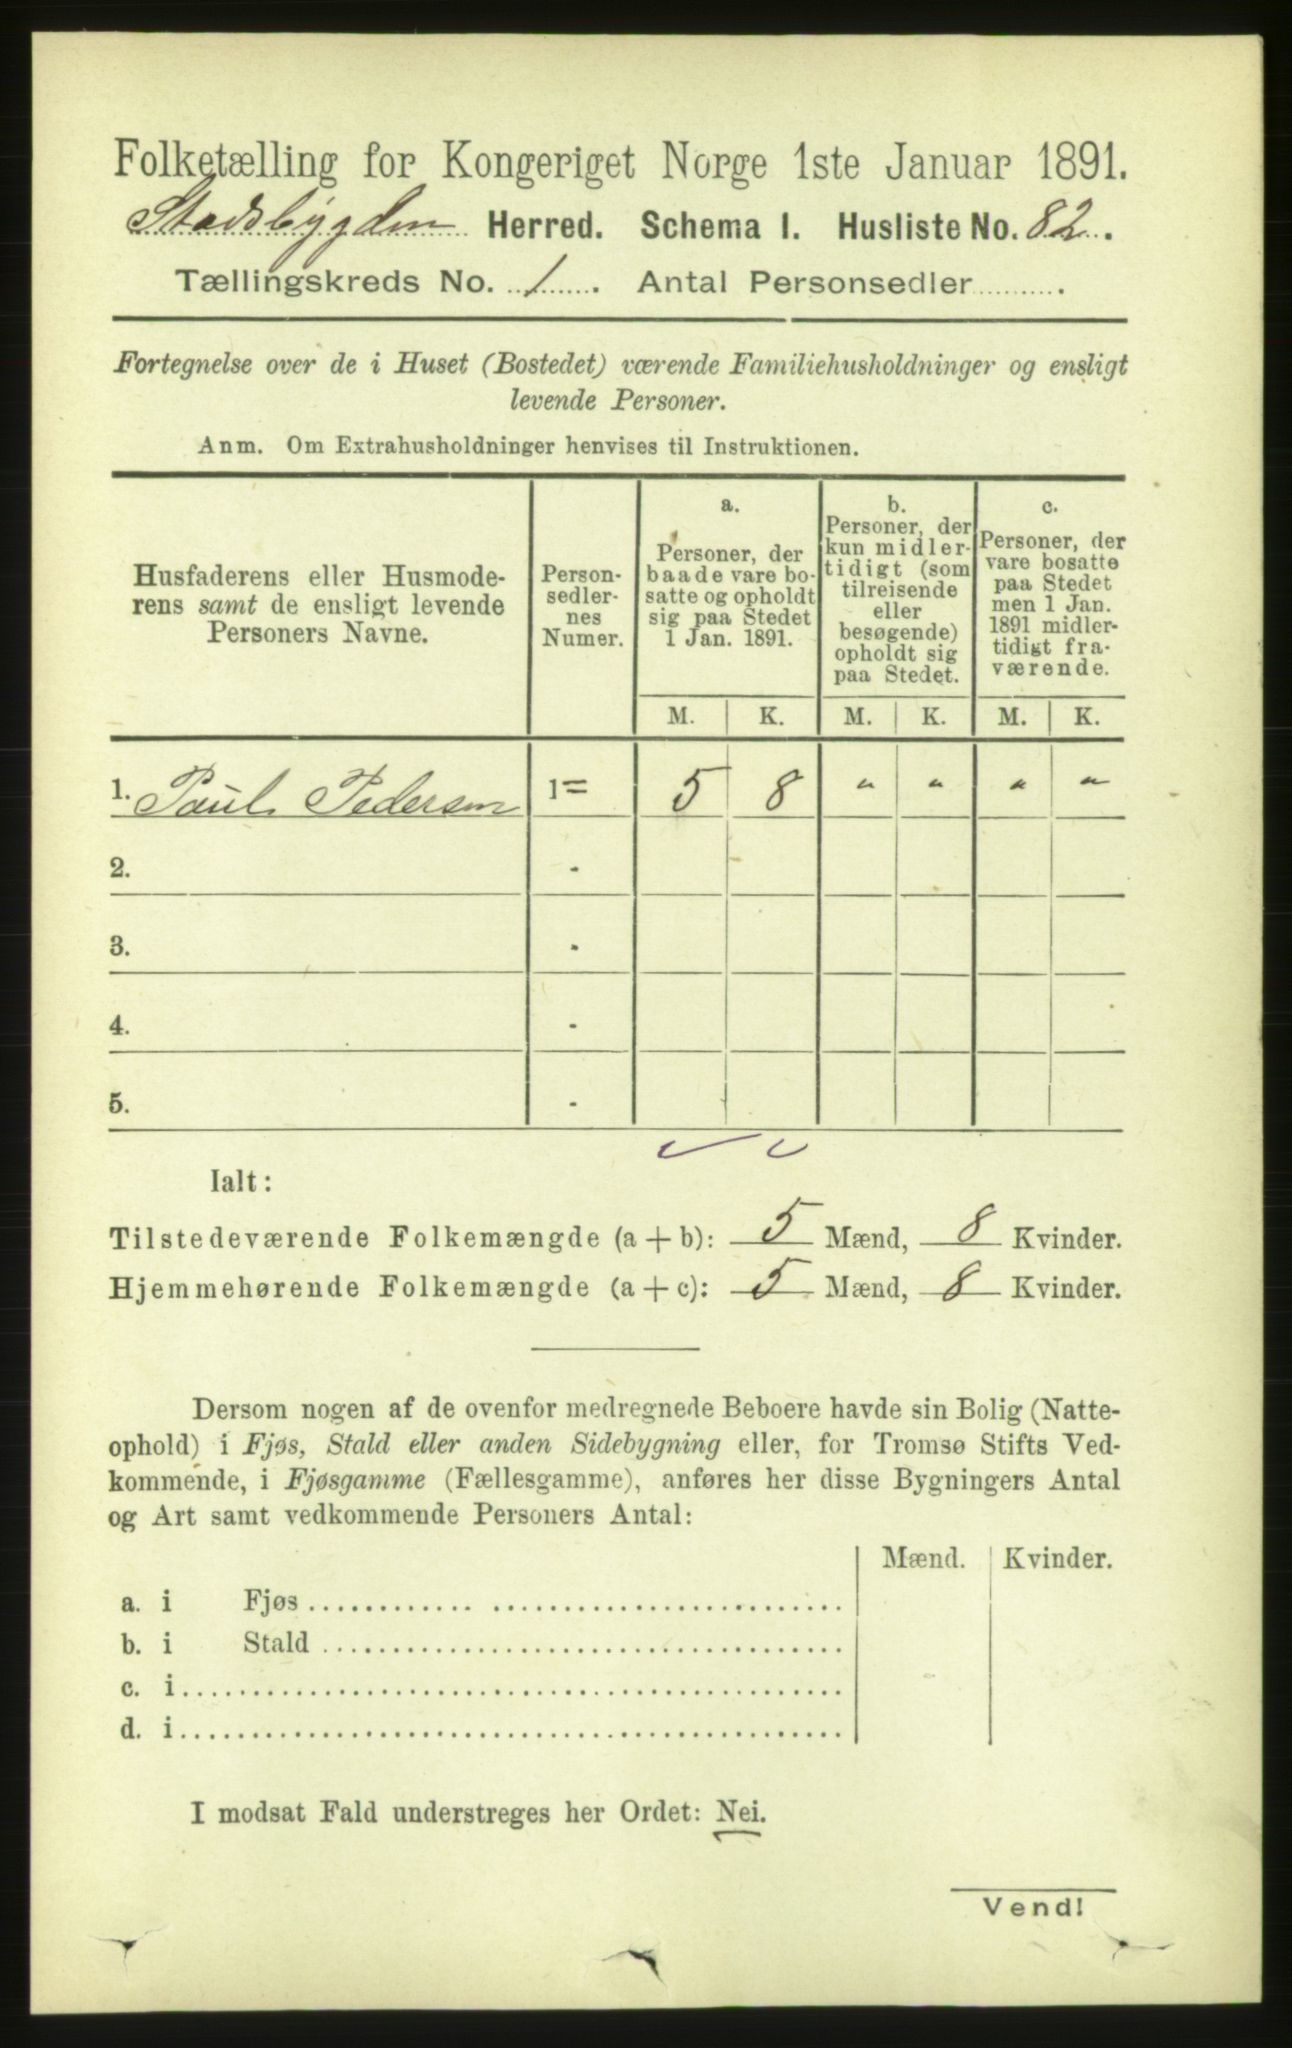 Folketælling for Kongeriget Norge 1ste Januar 1891.
Stadsbygden Herred. Schema I. Husliste No. 82.
Tællingskreds No. 1. Antal Personsedler .
Fortegnelse over de i Huset (Bostedet) værende Familiehusholdninger og ensligt
levende Personer.
Anm. Om Extrahusholdninger henvises til Instruktionen.
Husfaderens eller Husmode-
rens samt de ensligt levende
Personers Navne.
Person-
sedler-
nes
Numer.
a.
Personer, der
baade vare bo-
satte og opholdt
sig paa Stedet
1 Jan. 1891.
b.
Personer, der
kun midler-
tidigt (som
tilreisende
eller
besøgende)
opholdt sig
paa Stedet.
c.
Personer, der
vare bosatte
paa Stedet
men 1 Jan.
1891 midler-
tidigt fra-
værende.
M. K. M. K. M. K.
1. Paul Pedersen 1 = 5 8 " " " "
2. -
3. -
4. -
5. -
Ialt:
Tilstedeværende Folkemængde (a + b): 5 Mænd, 8 Kvinder.
Hjemmehørende Folkemængde (a + c): 5 Mænd, 8 Kvinder.
Dersom nogen af de ovenfor medregnede Beboere havde sin Bolig (Natte-
ophold) i Fjøs, Stald eller anden Sidebygning eller, for Tromsø Stifts Ved-
kommende, i Fjøsgamme (Fællesgamme), anføres her disse Bygningers Antal
og Art samt vedkommende Personers Antal:
Mænd. Kvinder.
a. i Fjøs
b. i Stald
c. i
d. i
I modsat Fald understreges her Ordet: Nei.
Vend!